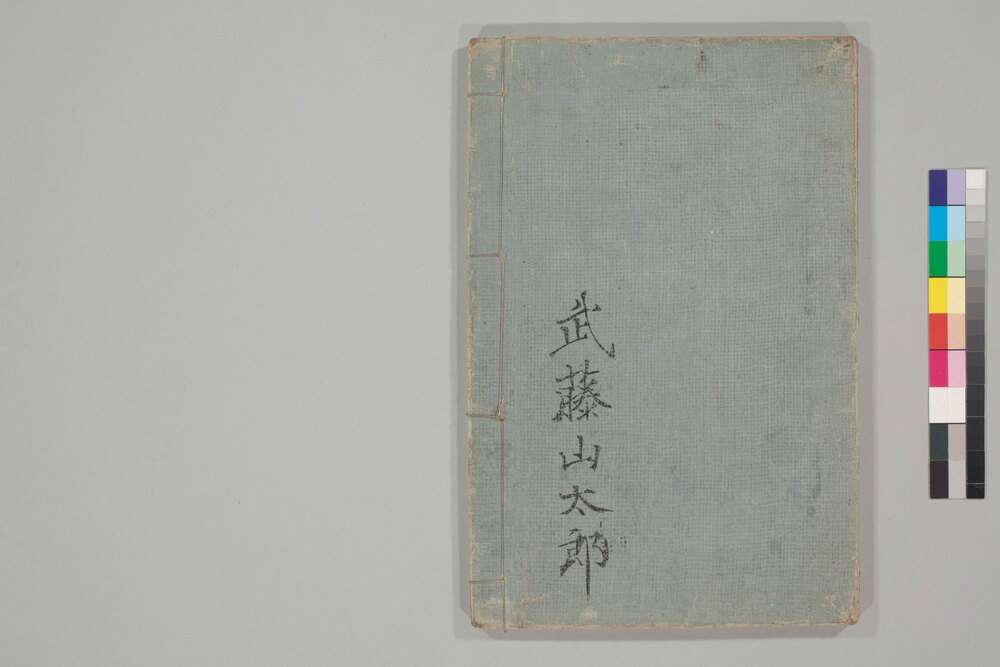 武藤山太郎